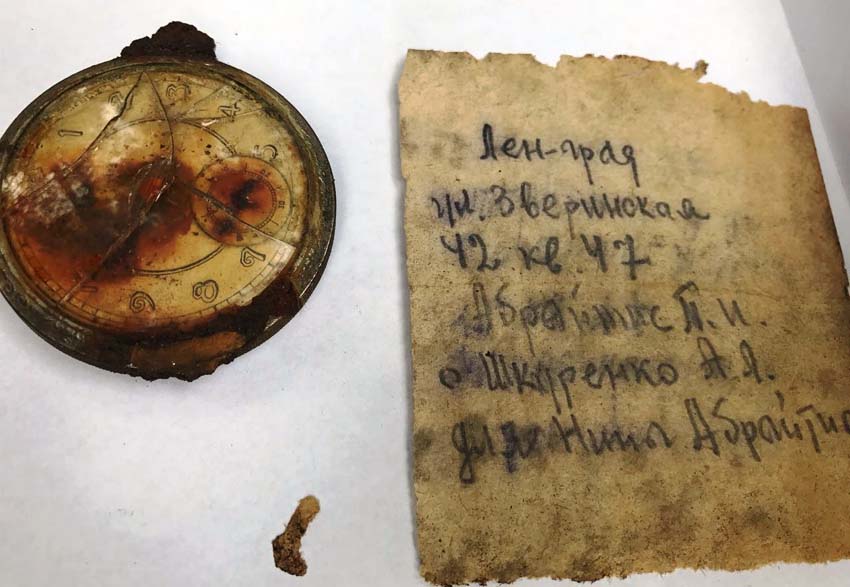 1 2 3 4 5
9 8
Лен-град
ул. Зверинская
42 кв. 47
Абрайтис П.И.
о Шкуренко А.Я.
для Нины Абрайтис